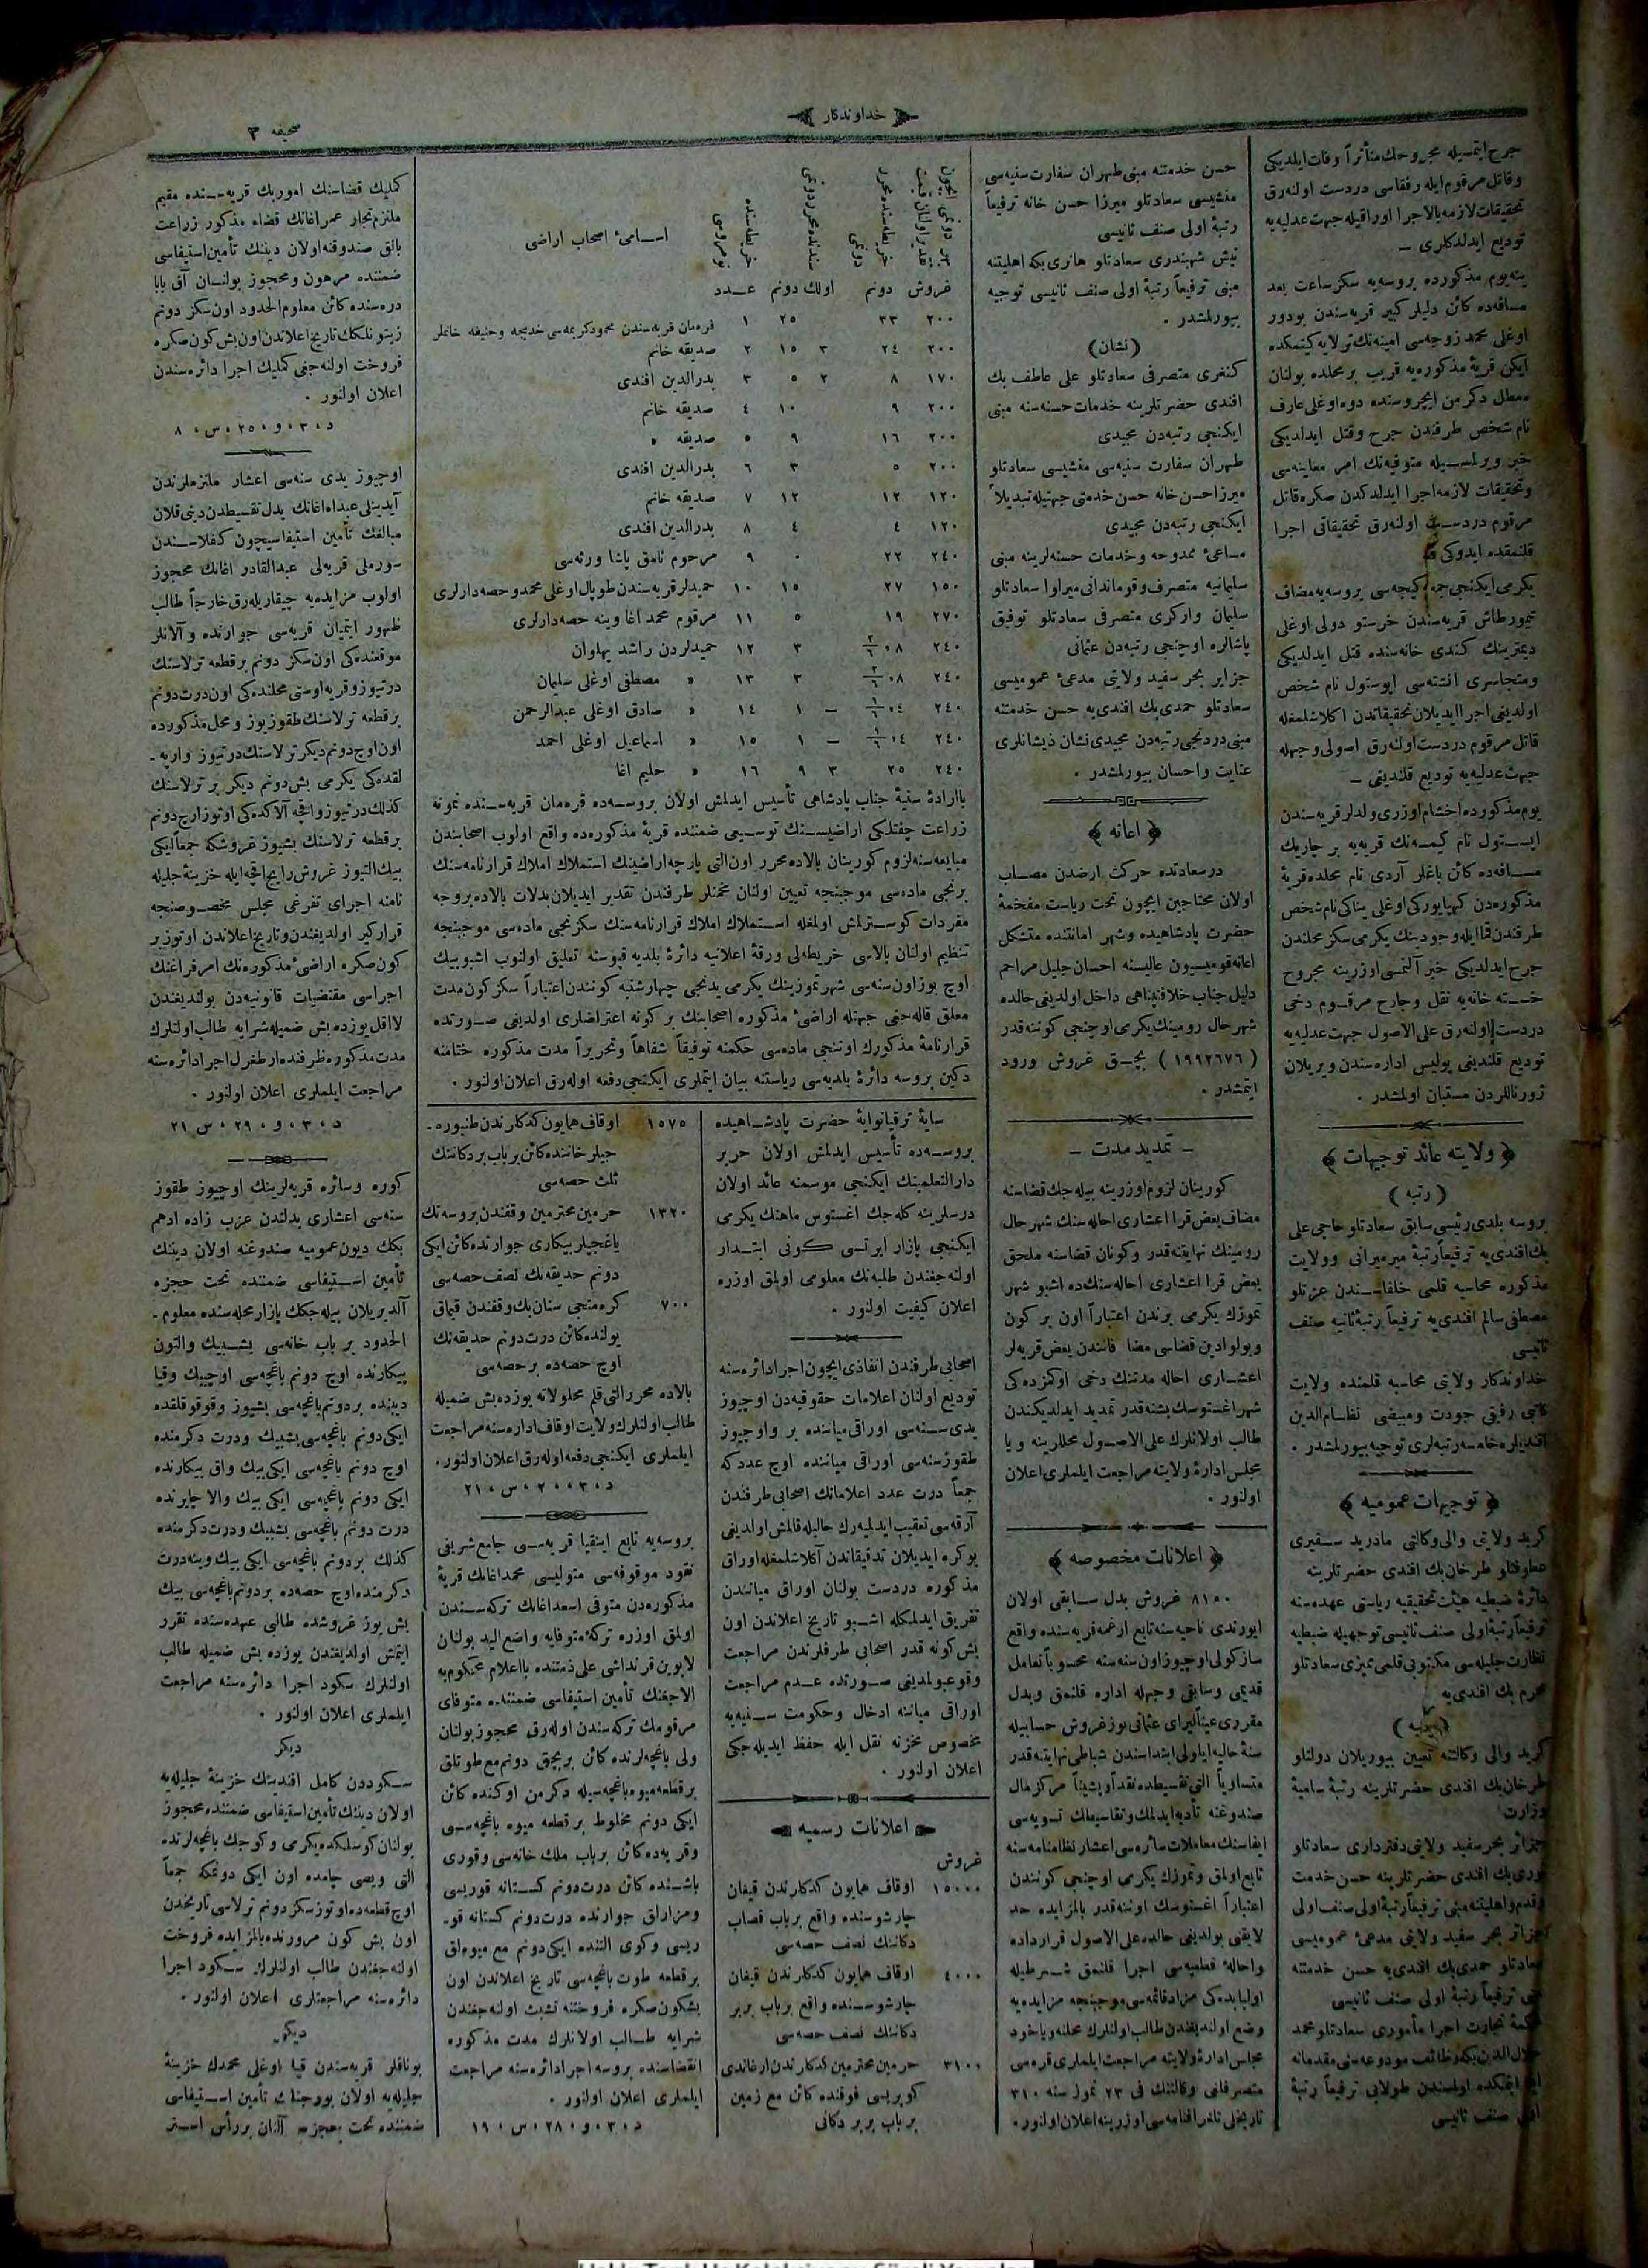 خداوندكار
صحيفه ٣
جرح ايتمسيله مجروحك متأثراً وفات ايلديكى
وقاتل مرقوم ايله رفقاسى دردست اوله‌رق
تحقيقات لازمه بالاجرا اوراقيله جهت عدليه‌يه
توديع ايدلدكلرى —
ينه يوم مذكورده بروسه‌يه سكز ساعت بعد
مسافه‌ده كائن دليلر كبير قريه‌سندن بودور
اوغلى محمد زوجه‌سى امينه‌نك ترلايه كيتمكده
ايكن قريهٔ مذكوره‌يه قريب بر محلده بولنان
معطل دكرمن ايچروسنده دوه اوغلى عارف
نام شخص طرفندن جرح وقتل ايدلديكى
خبر ويرلمسيله متوفيه‌نك امر معاينه‌سى
وتحقيقات لازمه اجرا ايدلدكدن صكره قاتل
مرقوم دردست اوله‌رق تحقيقاتى اجرا
قلنمقده ايدوكى
يكرمى ايكنجى جمعه كيجه‌سى بروسه‌يه مضاف
تيمورطاش قريه‌سندن خرستو دولى اوغلى
ديمترينك كندى خانه‌سنده قتل ايدلديكى
ومتجاسرى افشته‌سى اپوستول نام شخص
اولديغى اجرا ايديلان تحقيقاتدن اكلاشلمغله
قاتل مرقوم دردست اوله‌رق اصولى وجهله
جهت عدليه‌يه توديع قلنديغى —
يوم مذكورده اخشام اوزرى ولدلر قريه‌سندن
اپستول نام كيمسه‌نك قريه‌يه بر چاريك
مسافه‌ده كائن باغلر آردى نام محلده قريهٔ
مذكوره‌دن كهيا يوركى اوغلى يناكى نام شخص
طرفندن قما ايله وجودينك يكرمى سكز محلندن
جرح ايدلديكى خبر آلنمسى اوزرينه مجروح
خسته خانه‌يه نقل وجارح مرقوم دخى
دردست اوله‌رق على الاصول جهت عدليه‌يه
توديع قلنديغى پوليس اداره‌سندن ويريلان
ژورناللردن مستبان اولمشدر .
﴿ ولايته عائد توجيهات ﴾
( رتبه )
بروسه بلدى رئيسى سابق سعادتلو حاجى على
بك افندى‌يه ترفيعاً رتبهٔ ميرميرانى وولايت
مذكوره محاسبه قلمى خلفاسندن عزتلو
مصطفى سالم افندى‌يه ترفيعاً رتبهٔ ثانيه صنف
ثانيسى
خداوندكار ولايتى محاسبه قلمنده ولايت
كاتبى رفيقى جودت ومبيضى نظام الدين
افنديلره خامسه رتبه‌لرى توجيه بيورلمشدر .
﴿ توجيهات عموميه ﴾
كريد ولايتى والى وكالتى مادريد سفيرى
عطوفتلو طرخان بك افندى حضرتلرينه
دائرهٔ ضبطيه هيئت تحقيقيه رياستى عهده‌سنه
ترفيعاً رتبهٔ اولى صنف ثانيسى توجهيله ضبطيه
نظارت جليله‌سى مكتوبى قلمى مميزى سعادتلو
محرم بك افندى‌يه
( رتبه )
كريد والى وكالتنه تعيين بيوريلان دولتلو
طرخان بك افندى حضرتلرينه رتبهٔ ساميهٔ
وزارت
جزائر بحر سفيد ولايتى دفتردارى سعادتلو
نورى بك افندى حضرتلرينه حسن خدمت
وقدم واهليتنه مبنى ترفيعاً رتبهٔ اولى صنف اولى
جزائر بحر سفيد ولايتى مدعئ عموميسى
سعادتلو حمدى بك افندى‌يه حسن خدمتنه
مبنى ترفيعاً رتبهٔ اولى صنف ثانيسى
محكمهٔ تجارت اجرا مأمورى سعادتلو محمد
جلال الدين بكه وظائف مودوعه‌سنى مقدمانه
ايفا ايتمكده اولمسندن طولايى ترفيعاً رتبهٔ
اولى صنف ثانيسى
حسن خدمتنه مبنى طهران سفارت سنيه‌سى
منشيسى سعادتلو ميرزا حسن خانه ترفيعاً
رتبهٔ اولى صنف ثانيسى
نيش شهبندرى سعادتلو هانرى بكه اهليتنه
مبنى ترفيعاً رتبهٔ اولى صنف ثانيسى توجيه
بيورلمشدر .
(نشان)
كنغرى متصرفى سعادتلو على عاطف بك
افندى حضرتلرينه خدمات حسنه‌سنه مبنى
ايكنجى رتبه‌دن مجيدى
طهران سفارت سنيه‌سى منشيسى سعادتلو
ميرزا حسن خانه حسن خدمتى جهتيله تبديلاً
ايكنجى رتبه‌دن مجيدى
مساعئ ممدوحه وخدمات حسنه‌لرينه مبنى
سليمانيه متصرف وقومانداني ميرلوا سعادتلو
سلمان واركرى متصرفى سعادتلو توفيق
پاشالره اوچنجى رتبه‌دن عثمانى
جزاير بحر سفيد ولايتى مدعئ عموميسى
سعادتلو حمدى بك افندى‌يه حسن خدمتنه
مبنى دردنجى رتبه‌دن مجيدى نشان ذيشانلرى
عنايت واحسان بيورلمشدر .
﴿ اعانه ﴾
درسعادتده حركت ارضدن مصاب
اولان محتاجين ايچون تحت رياست مفخمهٔ
حضرت پادشاهيده وشهر امانتنده متشكل
اعانه قوميسيون عاليسنه احسان جليل مراحم
دليل جناب خلافتپناهى داخل اولديغى حالده
شهر حال روميئك يكرمى اوچنجى كوننه قدر
( ١٩٩٢٦٧٦ ) بچق غروش ورود
ايتمشدر .
— تمديد مدت —
كورينان لزوم اوزرينه بيله‌جك قضاسنه
مضاف بعض قرا اعشارى احاله‌سنك شهر حال
رومينك نهايتنه قدر وكونان قضاسنه ملحق
بعض قرا اعشارى احاله‌سنك‌ده اشبو شهر
تموزك يكرمى برندن اعتباراً اون بر كون
وبولوادين قضاسى مضافاتندن بعض قريه‌لر
اعشارى احاله مدتنك دخى اوكمزده‌كى
شهر اغستوسك بشنه قدر تمديد ايدلديكندن
طالب اولانلرك على الاصول محللرينه ويا
مجلس ادارهٔ ولايته مراجعت ايلملرى اعلان
اولنور .
﴿ اعلانات مخصوصه ﴾
٨١٥٠ غروش بدل سابقى اولان
ناحيه‌سنه تابع قريه‌سنده واقع
سازكولى اوچيوز اون سنه‌سنه محسوباً تعامل
قديمى وسابقى وجهله اداره قلنمق وبدل
مقررى عيناً ليراى عثمانى يوز غروش حسابيله
سنهٔ حاليه ايلولى ابتداسندن شباطى نهايتنه قدر
متساوياً التى تقسيطده نقداً وپشيناً مركز مال
صندوغنه تأديه ايدلمك وتقاسيطك تسويه‌سى
ايفاسنك معاملات سائره‌سى اعشار نظامنامه‌سنه
تابع اولمق وتموزك يكرمى اوچنجى كونندن
اعتباراً اغستوسك اوننه قدر بالمزايده حد
لايقى بولديغى حالده على الاصول قرارداده
واحالهٔ قطعيه‌سى اجرا قلنمق شرطيله
اولبابده‌كى مزاد قائمه‌سى موجبنجه مزايده‌يه
وضع اولنديغندن طالب اولنلرك محلنه وياخود
مجلس ادارهٔ ولايته مراجعت ايلملرى قره‌سى
متصرفلغى وكالتنك فى ٢٣ تموز سنه ٣١٠
تاريخلى تلغرافنامه‌سى اوزرينه اعلان اولنور .
اسامئ اصحاب اراضى
غروش دونم اولك دونم عدد
٢٠٠ ٢٣ ٢٥ ١ قره‌مان قريه‌سندن محمود كريمه‌سى خديجه وحنيفه خانملر
٢٠٠ ٢٤ ٣ ١٥ ٢ صديقه خانم
١٧٠ ٨ ٢ ٥ ٣ بدرالدين افندى
٢٠٠ ٩ ١٠ ٤ صديقه خانم
٢٠٠ ١٦ ٩ ٥ صديقه »
٢٠٠ ٥ ٣ ٦ بدرالدين افندى
١٢٠ ١٢ ١٢ ٧ صديقه خانم
١٢٠ ٤ ٤ ٨ بدرالدين افندى
٢٤٠ ٢٢ ٠ ٩ مرحوم نامق پاشا ورثه‌سى
١٥٠ ٢٧ ١٥ ١٠ حميدلر قريه‌سندن طوپال اوغلى محمد وحصه‌دارلرى
٢٧٠ ١٩ ٥ ١١ مرقوم محمد اغا وينه حصه‌دارلرى
٢٤٠ ٠٨ ٣ ١٢ حميدلردن راشد پهلوان
٢٤٠ ٠٨ ٣ ١٣ » مصطفى اوغلى سلمان
٢٤٠ ٠٤ — ١ ١٤ » صادق اوغلى عبدالرحمن
٢٤٠ ٠٤ — ١ ١٥ » اسماعيل اوغلى احمد
٢٤٠ ٢٥ ٣ ٩ ١٦ » حليم اغا
باارادهٔ سنيهٔ جناب پادشاهى تأسيس ايدلمش اولان بروسه‌ده قره‌مان قريه‌سنده نمونه
زراعت چفتلكى اراضيسنك توسيعى ضمننده قريهٔ مذكوره‌ده واقع اولوب اصحابندن
مبايعه‌سنه لزوم كورينان بالاده محرر اون التى پارچه اراضينك استملاك املاك قرارنامه‌سنك
برنجى ماده‌سى موجبنجه تعيين اولنان مخمنلر طرفندن تقدير ايديلان بدلات بالاده بروجه
مفردات كوسترلمش اولمغله استملاك املاك قرارنامه‌سنك سكزنجى ماده‌سى موجبنجه
تنظيم اولنان بالاسى خريطه‌لى ورقهٔ اعلانيه دائرهٔ بلديه قپوسنه تعليق اولنوب اشبو بيك
اوچ يوز اون سنه‌سى شهر تموزينك يكرمى يدنجى چهارشنبه كونندن اعتباراً سكز كون مدت
معلق قاله‌جغى جهتله اراضئ مذكوره اصحابنك بر كونه اعتراضلرى اولديغى صورتده
قرارنامهٔ مذكورك اوننجى ماده‌سى حكمنه توفيقاً شفاهاً وتحريراً مدت مذكوره ختامنه
دكين بروسه دائرهٔ بلديه‌سى رياستنه بيان ايتملرى ايكنجى دفعه اوله‌رق اعلان اولنور .
سايهٔ ترقياتوايهٔ حضرت پادشاهيده
بروسه‌ده تأسيس ايدلمش اولان حرير
دارالتعليمنك ايكنجى موسمنه عائد اولان
درسلرينه كله‌جك اغستوس ماهنك يكرمى
ايكنجى پازار ايرتسى كونى ابتدار
اولنه‌جغندن طلبه‌نك معلومى اولمق اوزره
اعلان كيفيت اولنور .
اصحابى طرفندن انفاذى ايچون اجرا دائره‌سنه
توديع اولنان اعلامات حقوقيه‌دن اوچيوز
يدى سنه‌سى اوراقى مياننده بر واوچيوز
طقوز سنه‌سى اوراقى مياننده اوچ عدد كه
جمعاً درت عدد اعلاماتك اصحابى طرفندن
آرقه‌سى تعقيب ايدلميه‌رك حاليله قالمش اولديغى
بوكره ايديلان تدقيقاتدن آكلاشلمغله اوراق
مذكوره دردست بولنان اوراق مياننندن
تفريق ايدلمكله اشبو تاريخ اعلاندن اون
بش كونه قدر اصحابى طرفلرندن مراجعت
وقوعبولمديغى صورتده عدم مراجعت
اوراقى مياننه ادخال وحكومت سنيه‌يه
مخصوص مخزنه نقل ايله حفظ ايديله‌جكى
اعلان اولنور .
اعلانات رسميه
غروش
١٥٠٠٠ اوقاف همايون كدكلرندن قيغان
چارشوسنده واقع بر باب قصاب
دكاننك نصف حصه‌سى
٤٠٠٠ اوقاف همايون كدكلرندن قيغان
چارشوسنده واقع بر باب بربر
دكاننك نصف حصه‌سى
٣١٠٠ حرمين محترمين كدكلرندن ارغاندى
كوپريسى فوقنده كائن مع زمين
بر باب بربر دكانى
١٥٧٥ اوقاف همايون كدكلرندن طنبوره‌-
جيلر خاننده كائن بر باب بر دكاننك
ثلث حصه‌سى
١٣٢٠ حرمين محترمين وقفندن بروسه‌نك
ياغجيلر بيكارى جوارنده كائن ايكى
دونم حديقه‌نك نصف حصه‌سى
٧٠٠ كره‌منجى سنان بك وقفندن قيماق
يولنده كائن درت دونم حديقه‌نك
اوچ حصه‌ده بر حصه‌سى
بالاده محرر التى قلم محلولاته يوزده بش ضميله
طالب اولنلرك ولايت اوقاف اداره‌سنه مراجعت
ايلملرى ايكنجى دفعه اوله‌رق اعلان اولنور .
د ٣٠٠ و ٢٠ س ٢١
بروسه‌يه تابع قريه‌سى جامع شريفى
نقود موقوفه‌سى متوليسى محمد اغانك قريهٔ
مذكوره‌دن متوفى اسعد اغانك تركه‌سندن
اولمق اوزره تركهٔ متوفايه واضع اليد بولنان
لابوين قرنداشى على ذمتنده بااعلام محكوم به
الاجغنك تأمين استيفاسى ضمننده متوفاى
مرقومك تركه‌سندن اوله‌رق محجوز بولنان
ولى باغچه‌لرنده كائن بربچق دونم مع طوتلق
بر قطعه ميوه باغچه‌سيله دكرمن اوكنده كائن
ايكى دونم مخلوط بر قطعه ميوه باغچه‌سى
وقريه‌ده كائن بر باب ملك خانه‌سى وقورى
باشنده كائن درت دونم كستانه قوريسى
ومزارلق جوارنده درت دونم كستانه قو-
ريسى وكوى التنده ايكى دونم مع ميوه‌لق
بر قطعه طوت باغچه‌سى تاريخ اعلاندن اون
بشكون صكره فروختنه تشبث اولنه‌جغندن
شرايه طالب اولانلرك مدت مذكوره
انقضاسنده بروسه اجرا دائره‌سنه مراجعت
ايلملرى اعلان اولنور .
د ٣٠٠ و ٢٨٠ س ١٩٠
كمليك قضاسنك قريه‌سنده مقيم
ملتزم تجار عمر اغانك قضاء مذكور زراعت
بانق صندوقنه اولان ديننك تأمين استيفاسى
ضمننده مرهون ومحجوز بولنان آق بابا
دره‌سنده كائن معلوم الحدود اون سكز دونم
زيتونلكك تاريخ اعلاندن اون بش كون صكره
فروخت اولنه‌جغى كمليك اجرا دائره‌سندن
اعلان اولنور .
د ٣٠٠ و ٢٥٠ س ٨
اوچيوز يدى سنه‌سى اعشار ملتزملرندن
آيدينلى عبدالله اغانك بدل تقسيطدن دينى قلان
مبالغك تأمين استيفاسيچون كفلاسندن
سورملى قريه‌لى عبدالقادر اغانك محجوز
اولوب مزايده‌يه چيقاريله‌رق خارجاً طالب
ظهور ايتميان قريه‌سى جوارنده وآلانلر
موقعنده‌كى اون سكز دونم بر قطعه ترلاسنك
درتيوز وقريه اوستى محلنده‌كى اون درت دونم
بر قطعه ترلاسنك طقوزيوز ومحل مذكورده
اون اوچ دونم ديكر ترلاسنك درتيوز وارپه‌-
لقده‌كى يكرمى بش دونم ديكر بر ترلاسنك
كذلك درتيوز واقچه آلاكده‌كى اوتوز اوچ دونم
بر قطعه ترلاسنك بشيوز غروشكه جمعاً ايكى
بيك التيوز غروش رايج اقچه ايله خزينهٔ جليله
نامنه اجراى تفرغى مجلس مخصوصنجه
قراركير اولديغندن وتاريخ اعلاندن اوتوز بر
كون صكره اراضئ مذكوره‌نك امر فراغنك
اجراسى مقتضيات قانونيه‌دن بولنديغندن
لااقل يوزده بش ضميله شرايه طالب اولنلرك
مدت مذكوره ظرفنده ارطغرل اجرا دائره‌سنه
مراجعت ايلملرى اعلان اولنور .
د ٣٠٠ و ٢٩٠ س ٢١
كوره وسائره قريه‌لرينك اوچيوز طقوز
سنه‌سى اعشارى بدلندن عزب زاده ادهم
بكك ديون عموميه صندوغنه اولان ديننك
تأمين استيفاسى ضمننده تحت حجزه
آلديريلان بيله‌جكك پازار محله‌سنده معلوم-
الحدود بر باب خانه‌سى بشبيك والتون
بيكارنده اوچ دونم باغچه‌سى اوچبيك وقيا
ديبنده بر دونم باغچه‌سى بشيوز وقوقلقده
ايكى دونم باغچه‌سى بشبيك ودرت دكرمنده
اوچ دونم باغچه‌سى ايكى بيك واق بيكارنده
ايكى دونم باغچه‌سى ايكى بيك والا چايرنده
درت دونم باغچه‌سى بشبيك ودرت دكرمنده
كذلك بر دونم باغچه‌سى ايكى بيك وينه درت
دكرمنده اوچ حصه‌ده بر دونم باغچه‌سى بيك
بش يوز غروشده طالبى عهده‌سنده تقرر
ايتمش اولديغندن يوزده بش ضميله طالب
اولنلرك سكود اجرا دائره‌سنه مراجعت
ايلملرى اعلان اولنور .
ديكر
سكوددن كامل افندينك خزينهٔ جليله‌يه
اولان ديننك تأمين استيفاسى ضمننده محجوز
بولنان كوسلكده يكرمى وكوجك باغچه‌لرنده
التى وبصى جامده اون ايكى دونمكه جمعاً
اوچ قطعه‌ده اوتوز سكز دونم ترلاسى تاريخدن
اون بش كون مرورنده بالمزايده فروخت
اولنه‌جغندن طالب اولنلرك سكود اجرا
دائره‌سنه مراجعتلرى اعلان اولنور .
ديكر
بوناقلر قريه‌سندن قيا اوغلى محمدك خزينهٔ
جليله‌يه اولان بورجنك تأمين استيفاسى
ضمننده تحت حجزه آلنان بر رأس استر